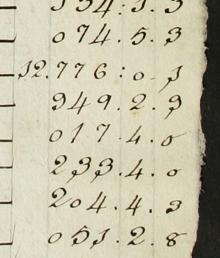 154:1.3
074.5.3
12.776:0.1
949.2.9
017.4.0
233.4.0
204.4.3
051.2.8